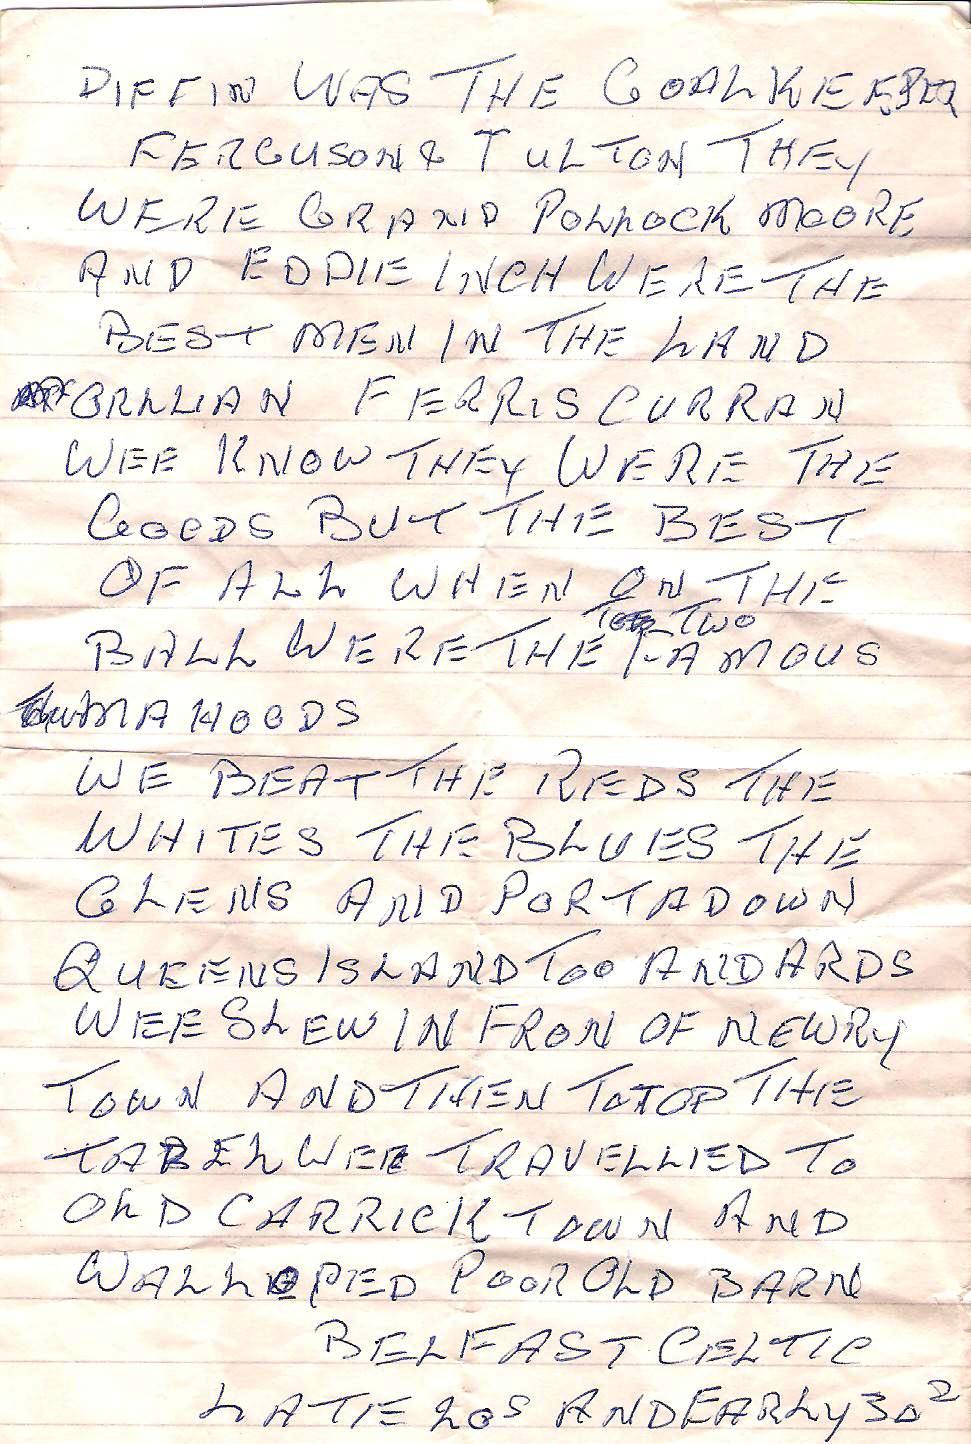 DIFFIN WAS THE GOALKEEPER
FERGUSON & TULTON THEY
WERE GRAND POLLOCK MOORE
AND EDDIE INCH WERE THE
BEST MEN IN THE LAND
GRILLIAN FERRIS CURRAN
WEE KNOW THEY WERE THE
GOODS BUT THE BEST
OF ALL WHEN ON THE
TWO
BALL WERE THE FAMOUS
MAHOODS
WE BEAT THE REDS THE
WHITES THE BLUES THE
GLENS AND PORTADOWN
QUEENS ISLAND TOO AND ARDS
WEE SLEW IN FRON OF NEWRY
TOWN AND THEN TO TOP THE
TABEL WEE TRAVELLIED TO
OLD CARRICK TOWN AND
WALLOPED POOR OLD BARN
BELFAST CELTIC
LATE 20S AND EARLY 30S